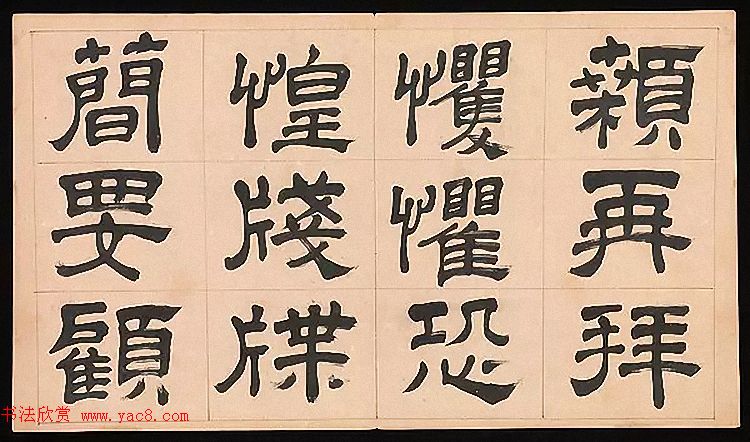 顙再拜
戄懼恐
惶牋牒
簡要顧
书法欣赏 www.yac8.com